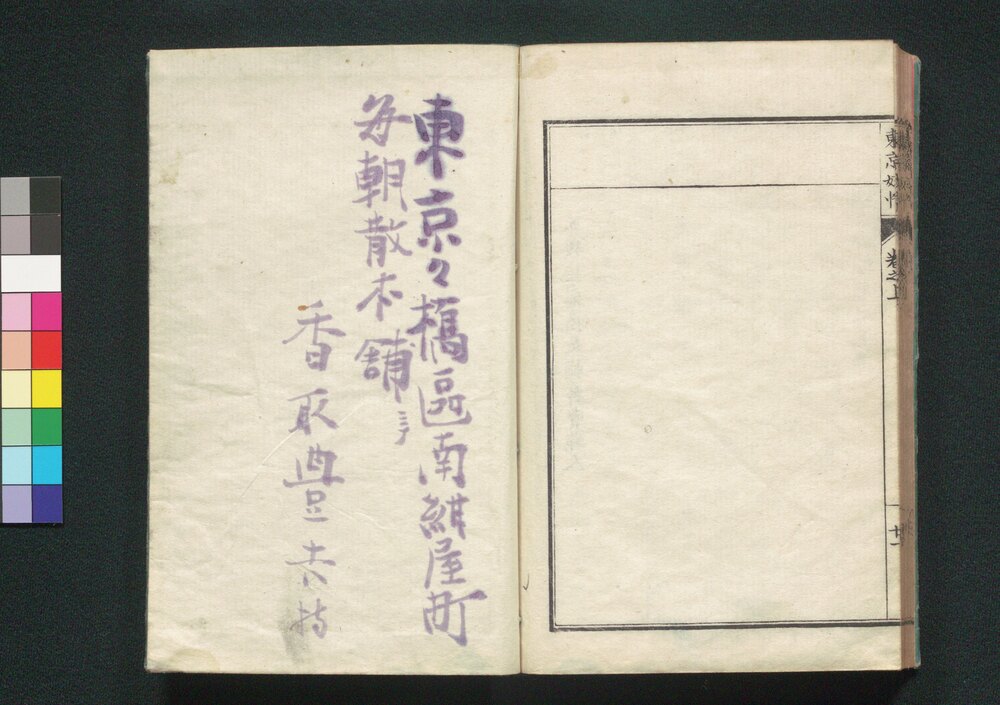 東京妙
巻之上
廿一
東京々橋區南紺屋町
毎朝散本舗ニテ
香取豊
持